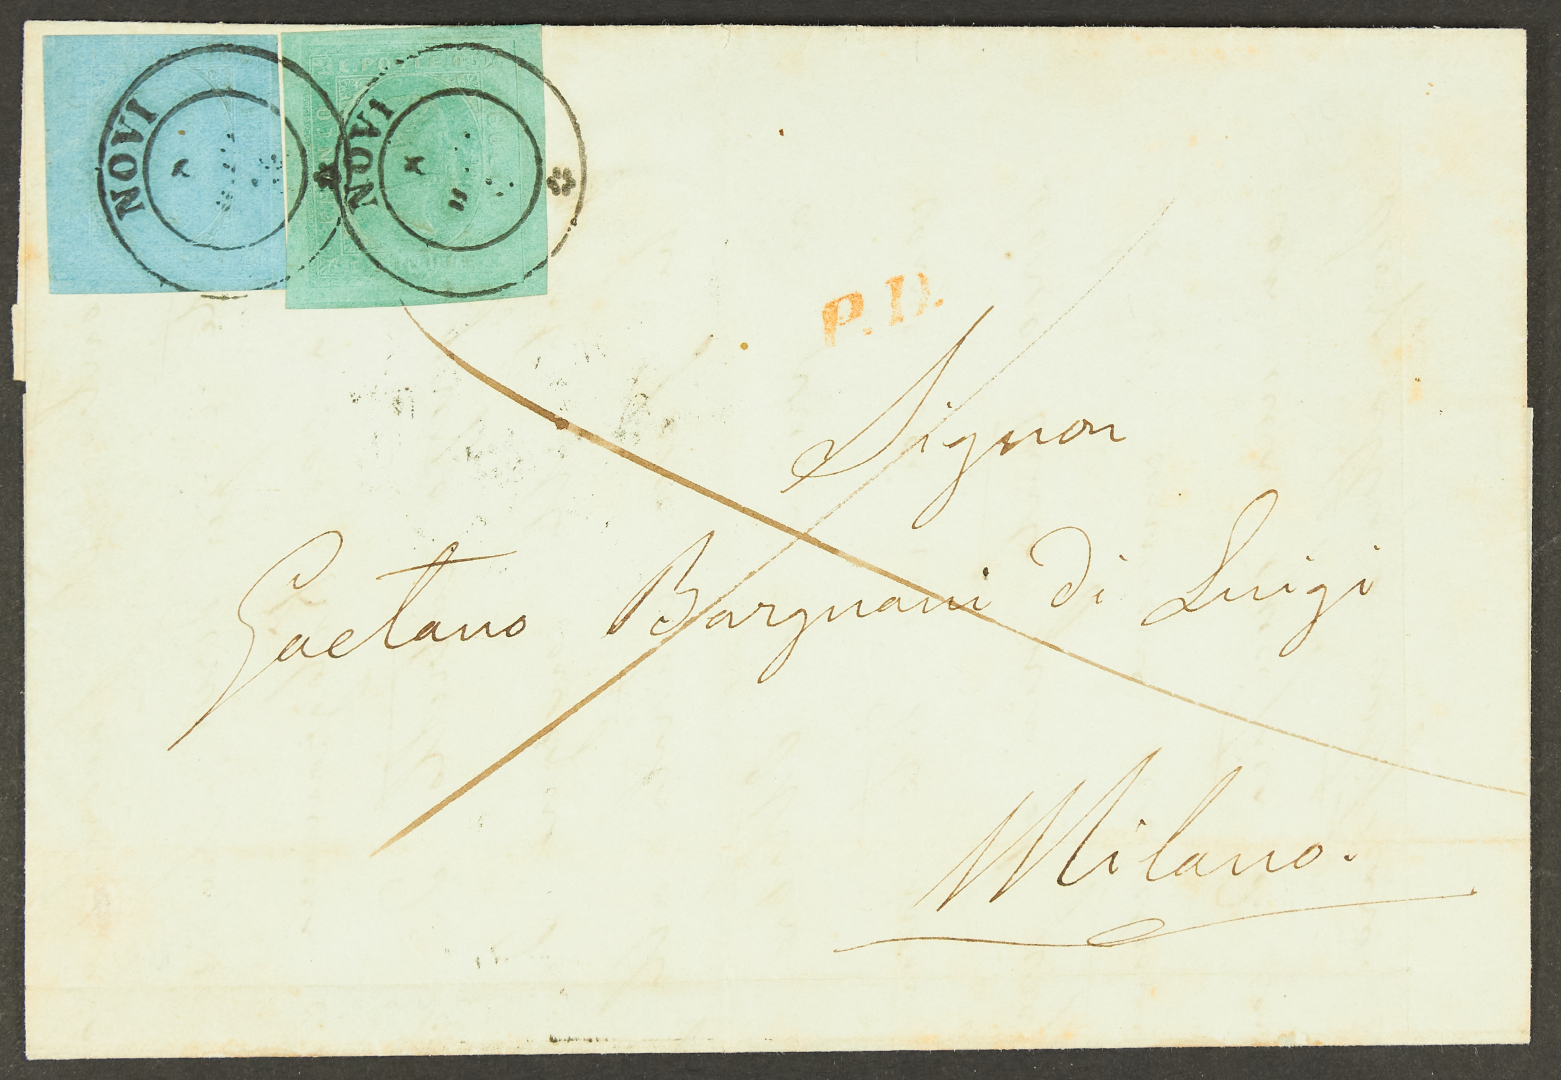 NOVI
NOVI
P.D.
Signor
Gaetano Bargnani di Luigi
Milano.